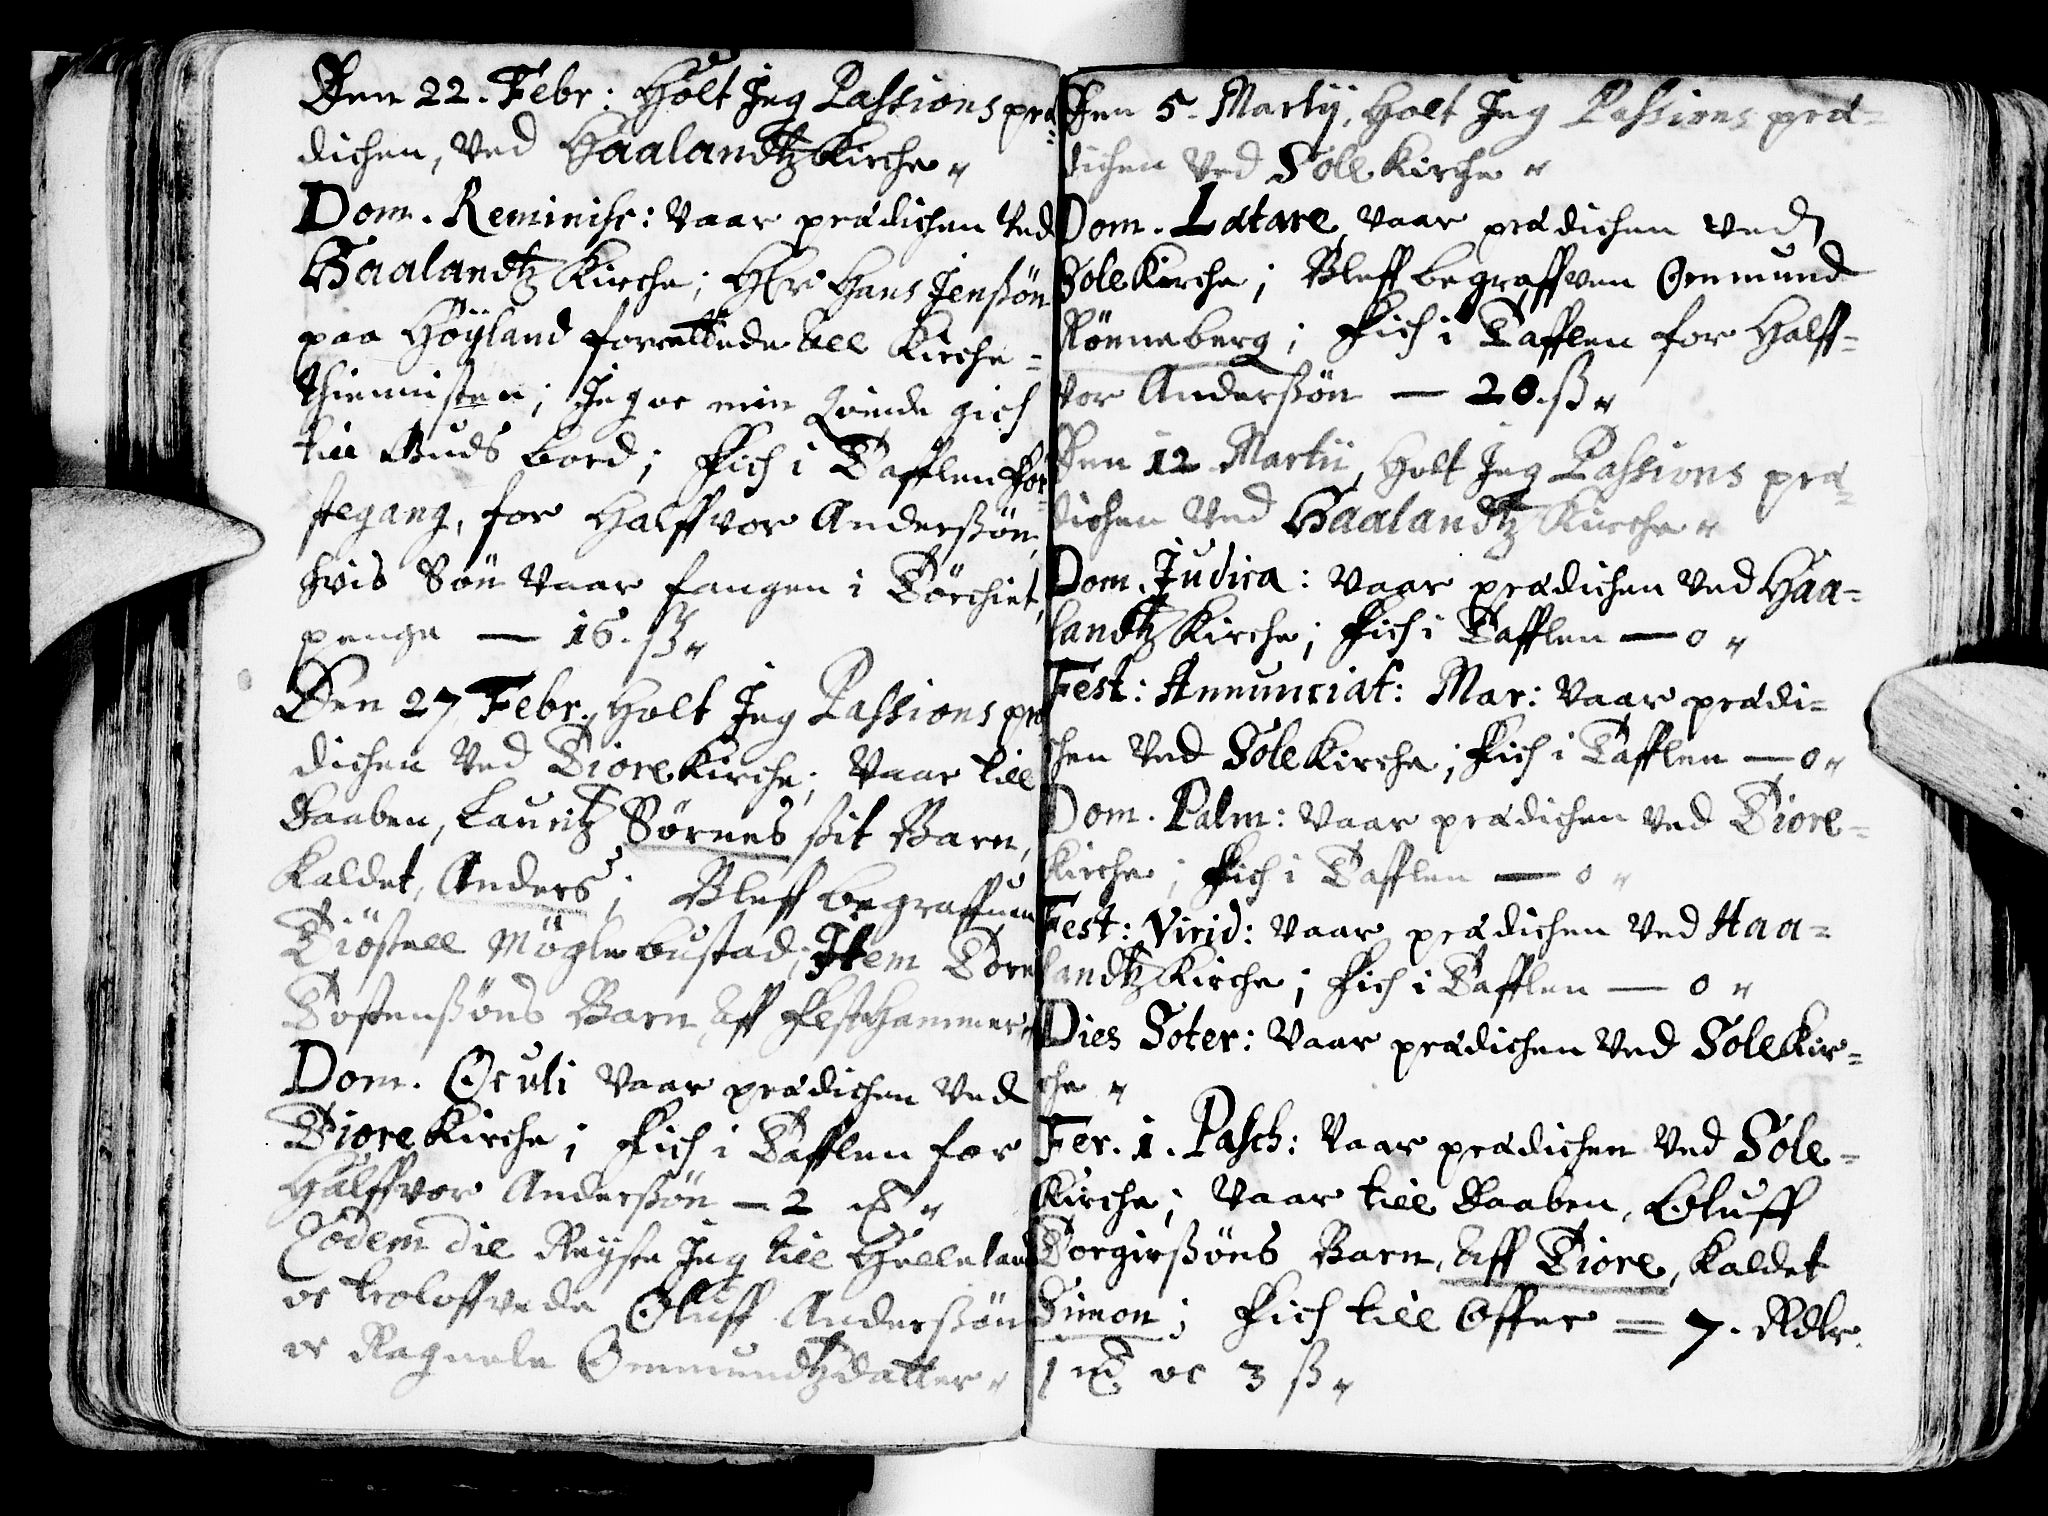 Den 22. Febr: Holt Jeg Passions præ-
dichen, Ved Haalandtz Kirche
Dom. Reminisc: Vaar prædichen Ved
Haalandtz Kirche; Her Hans Jenssøn
paa Høÿland forrettede all Kirche-
thiennisten; Jeg oc min Qvinde gich
till Guds bord; Fich i Tafflen før-
stegang, for Halffvor Anderssøn,
hvis Søn Vaar fangen i Törchiet,
penge — 16. ß
Den 27 Febr. Holt Jeg Passions præ
dichen Ved Tiore Kirche; Vaar till
Daaben, Lauritz Sørnes sit Barn,
Kaldet, Anders; Bleff begraffven
Tiøstell Møglebustad; Item Tore
Tostenssøns Barn, aff Hammer
Dom. Oculi Vaar prædichen Ved
Tiore Kirche; Fich i Tafflen for
Halffvor Anderssøn — 2
Eodem die Reyste Jeg till Helleland
oc troloffvede Oluff Anderssøn
oc Ragnele Ommundtzdatter
Den 5. Martij, Holt Jeg Passions præ-
dichen Ved Sole Kirche
Dom. Lætare, Vaar prædichen Ved
Sole Kirche; Bleff begraffven Ommund
Rønneberg; Fich i Tafflen for Halff-
vor Anderssøn — 20. ß
Den 12 Martii, Holt Jeg Passions præ-
dichen Ved Haalandtz Kirche
Dom. Judica: Vaar prædichen Ved Haa-
landtz Kirche; Fich i Tafflen — 0
Fest: Annunciat: Mar: Vaar prædi-
chen Ved Sole Kirche; Fich i Tafflen — 0
Dom. Palm: Vaar prædichen Ved Tiore-
kirche; Fich i Tafflen — 0
Fest: Virid: Vaar prædichen Ved Haa-
landtz Kirche; Fich i Tafflen — 0
Dies Soter: Vaar prædichen Ved Sole Kir-
che
Fer. 1. Pasch: Vaar prædichen Ved Sole-
Kirche; Vaar till Daaben, Oluff
Torgierssøns Barn, aff Tiore, Kaldet
Simon; Fich till Offer = 7. Rdlr.
1 oc 3 ß